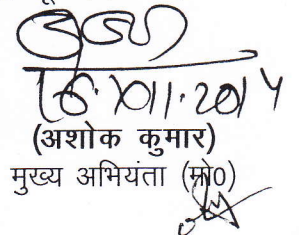 16.XII.2014
(अशोक कुमार)
मुख्य अभियंता (मो0)